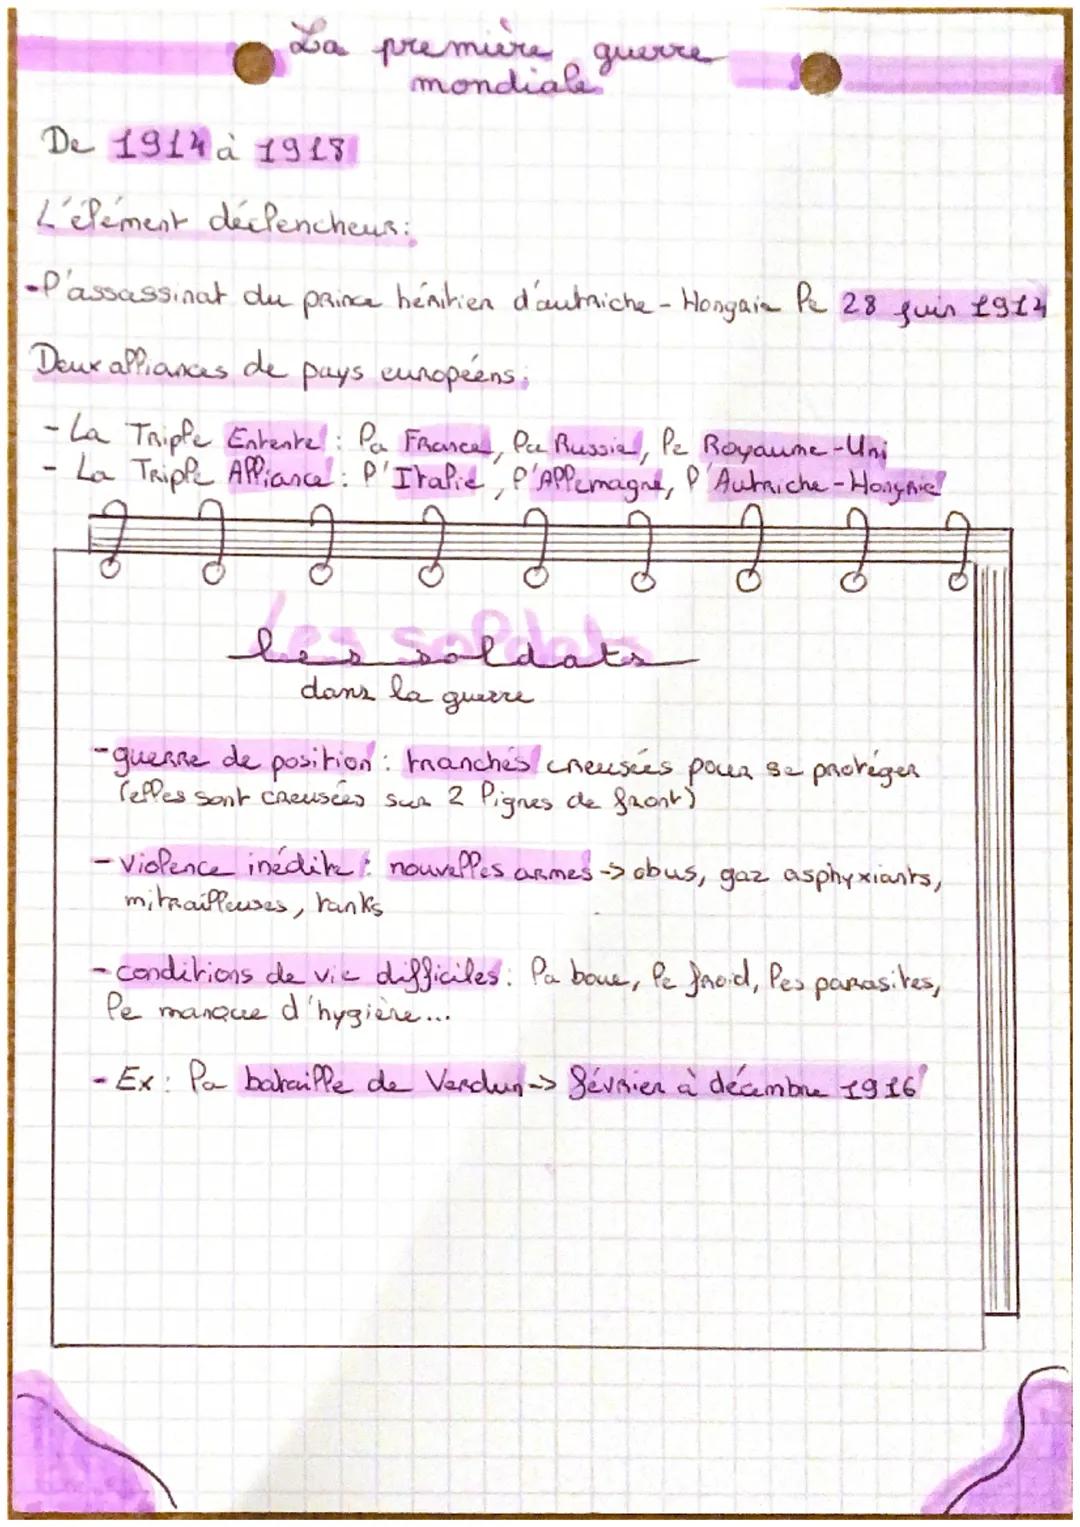 La première guerre
mondiale
De 1914 à 1918
L'élément déclencheur:
-l'assassinat du prince héritier d'autriche-Hongaie le 28 juin 1914
Deux alliances de pays européens:
- La Triple Entente : la France, la Russie, le Royaume-Uni
- La Triple Alliance : l'Italie, l'Allemagne, l'Autriche-Hongrie
les soldats
dans la guerre
-guerre de position : tranchés creusées pour se protéger
(elles sont creusées sur 2 lignes de front)
- violence inédite : nouvelles armes -> obus, gaz asphyxiants,
mitrailleuses, tanks
- conditions de vie difficiles : la boue, le froid, les parasites,
le manque d'hygière...
- Ex : la bataille de Verdun -> février à décembre 1916